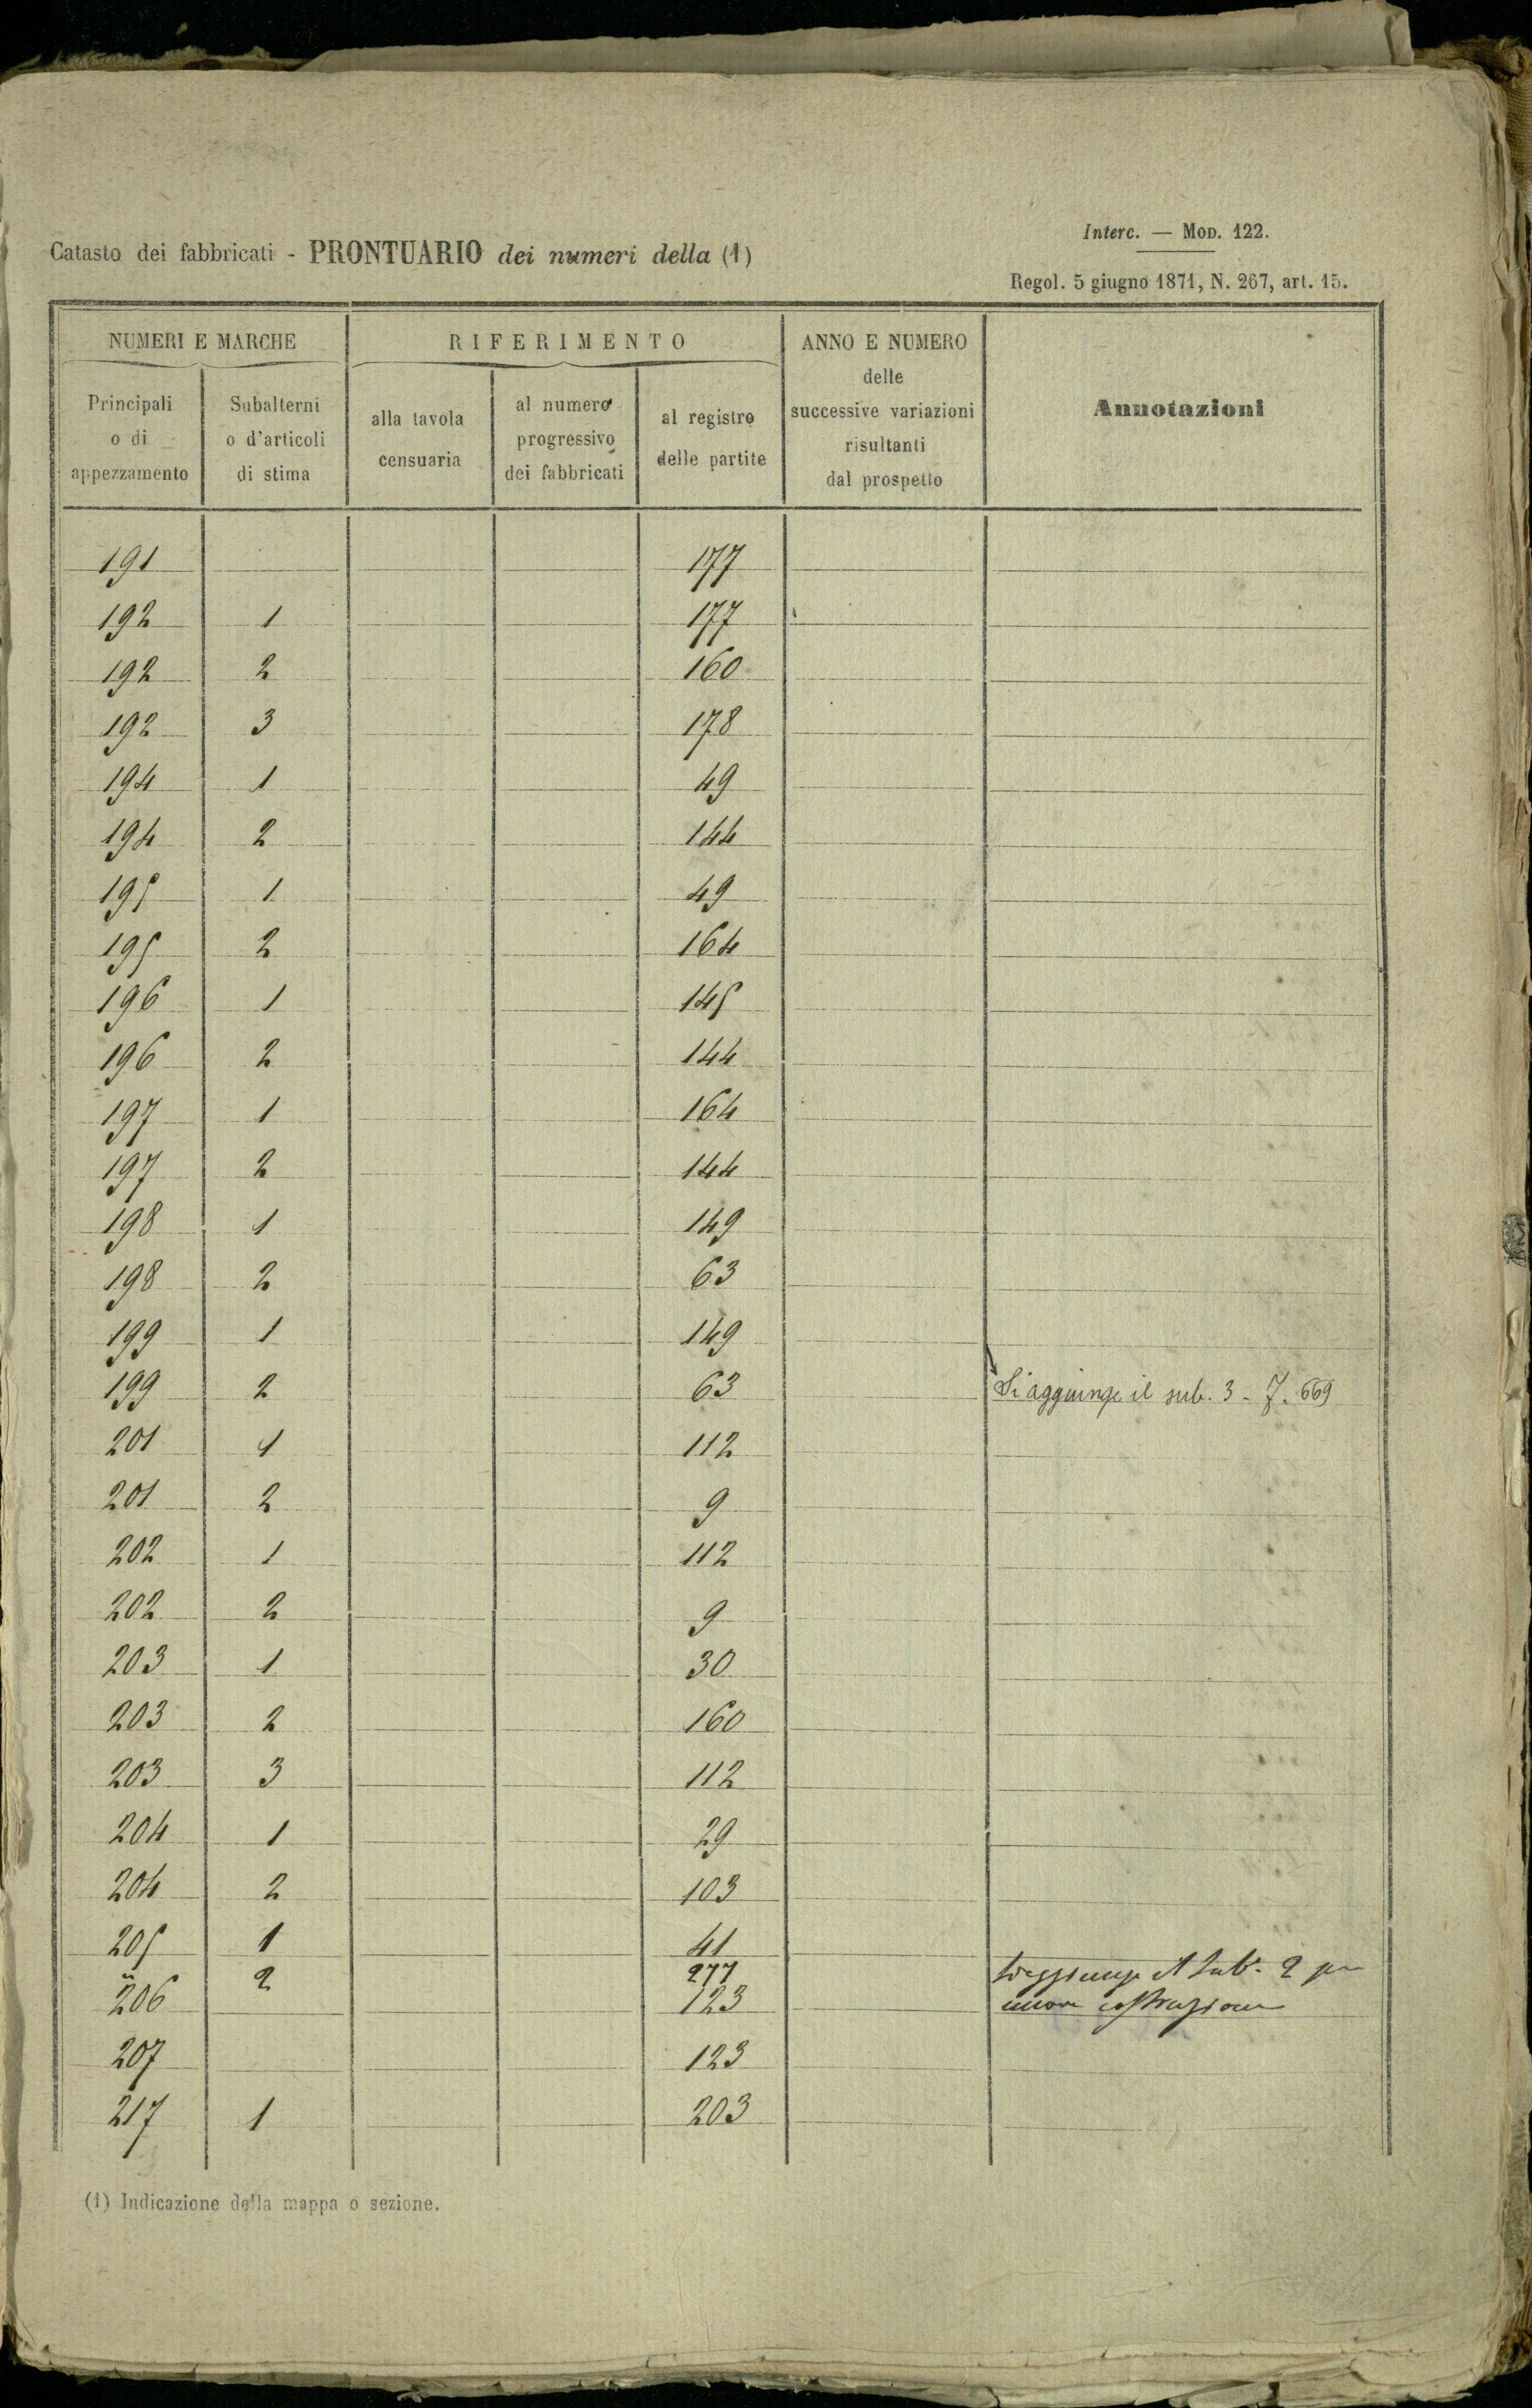 Interc. — Mod. 122.
Catasto dei fabbricati - PRONTUARIO dei numeri della (1)
Regol. 5 giugno 1871, N. 267, art. 15.
NUMERI E MARCHE
RIFERIMENTO
ANNO E NUMERO
delle
successive variazioni
risultanti
dal prospetto
Annotazioni
Principali
o di
appezzamento
Subalterni
o d'articoli
di stima
alla tavola
censuaria
al numero
progressivo
dei fabbricati
al registro
delle partite
191 177
192 1 177
192 2 160
192 3 178
194 1 49
194 2 144
195 1 49
195 2 164
196 1 145
196 2 144
197 1 164
197 2 144
198 1 149
198 2 63
199 1 149
199 2 63 Si aggiunge il sub. 3 - 7. 669
201 1 112
201 2 9
202 1 112
202 2 9
203 1 30
203 2 160
203 3 112
204 1 29
204 2 103
205 1 41
" 2 277 Si aggiunge il sub. 2 per
206 123 nuova costruzione
207 123
217 1 203
(1) Indicazione della mappa o sezione.